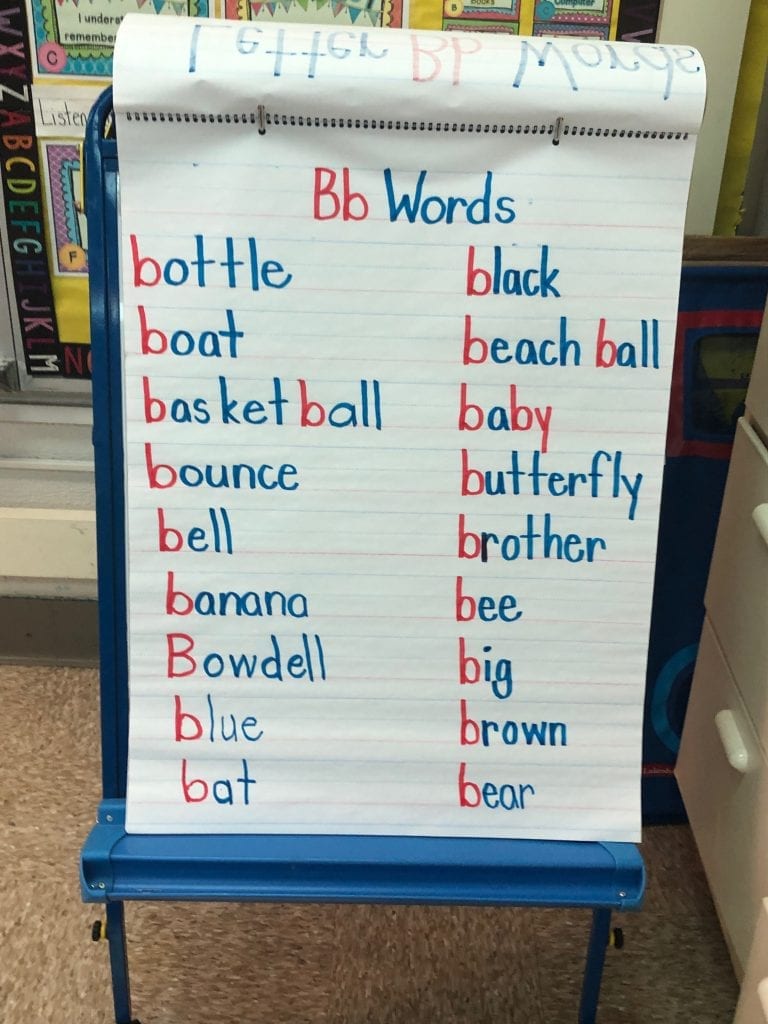 I underst
remember
BOOKS
Computer
C
B
C
Listen
F
WXYZABCDEFGHIJKLM
N
Letter Bb Words
Bb Words
bottle
boat
basketball
bounce
bell
banana
Bowdell
blue
bat
black
beach ball
baby
butterfly
brother
bee
big
brown
bear